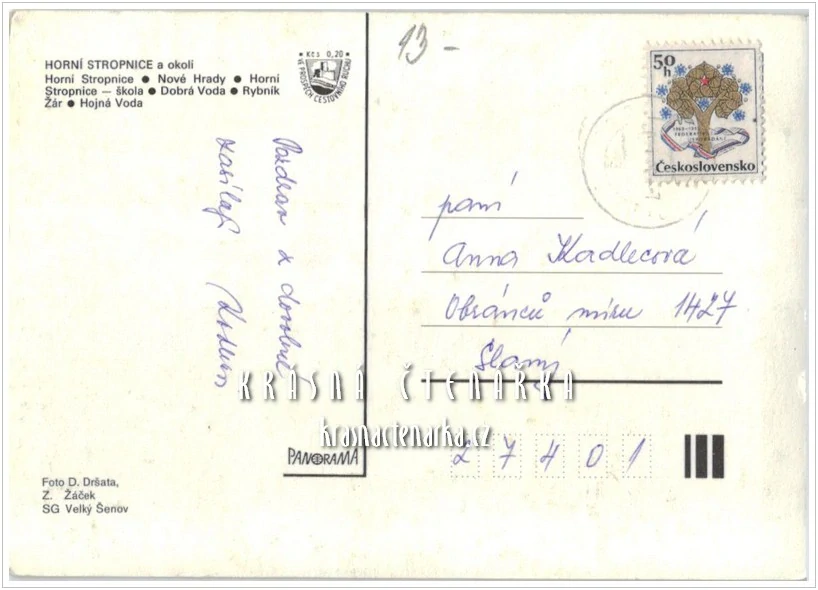 HORNÍ STROPNICE a okolí
Horní Stropnice ● Nové Hrady ● Horní
Stropnice — škola ● Dobrá Voda ● Rybník
Žár ● Hojná Voda
Kčs 0,20
VE PROSPĚCH CESTOVNÍHO RUCHU
13-
50
h
Československo
Pozdrav z dovolené
zasílají
paní
Anna Kadlecová
Obránců míru 1427
Slaný
27401
KRÁSNÁ ČTENÁŘKA
krasnactenarka.cz
PANORAMA
Foto D. Dršata,
Z. Žáček
SG Velký Šenov